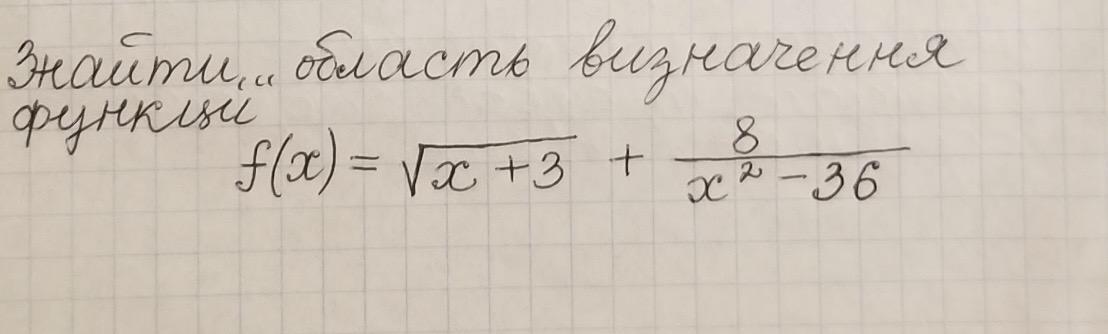 Знайти область визначення
функції
f(x) = √(x + 3) + 8/(x² - 36)